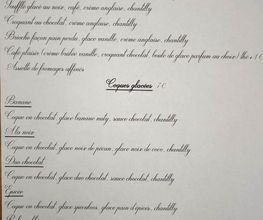 Soufflé glacé au noix, café, crème anglaise, chantilly
Croquant au chocolat, crème anglaise, chantilly
Brioche façon pain perdu, glace vanille, crème anglaise, chantilly
Café plaisir (crème brûlée vanille, croquant chocolat, boule de glace parfum au choix)
Assiette de fromages affinés
Coques glacées 7€
Banane
Coque en chocolat, glace banane, sauce chocolat, chantilly
A la noix
Coque en chocolat, glace noix de pécan, glace noix de coco, chantilly
Duo chocolat
Coque en chocolat, glace duo chocolat, sauce chocolat, chantilly
Epicée
Coque en chocolat, glace speculoos, glace pain d'épices, chantilly